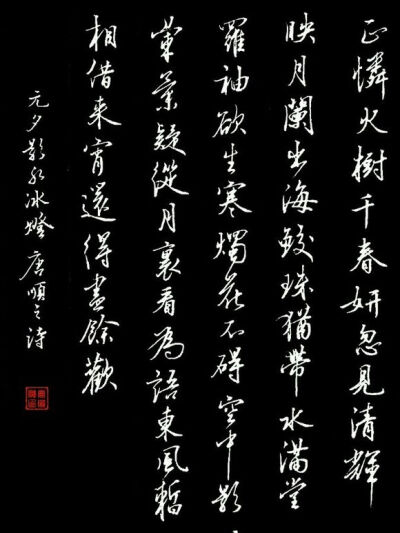 正憐火樹千春妍忽見清輝
映月闌出海鮫珠猶帶水滿堂
羅袖欲生寒燭花不碍空中影
疑從月裏看為語東風暫
相借来宵還得盡餘歡
元夕影冰燈 唐順之詩